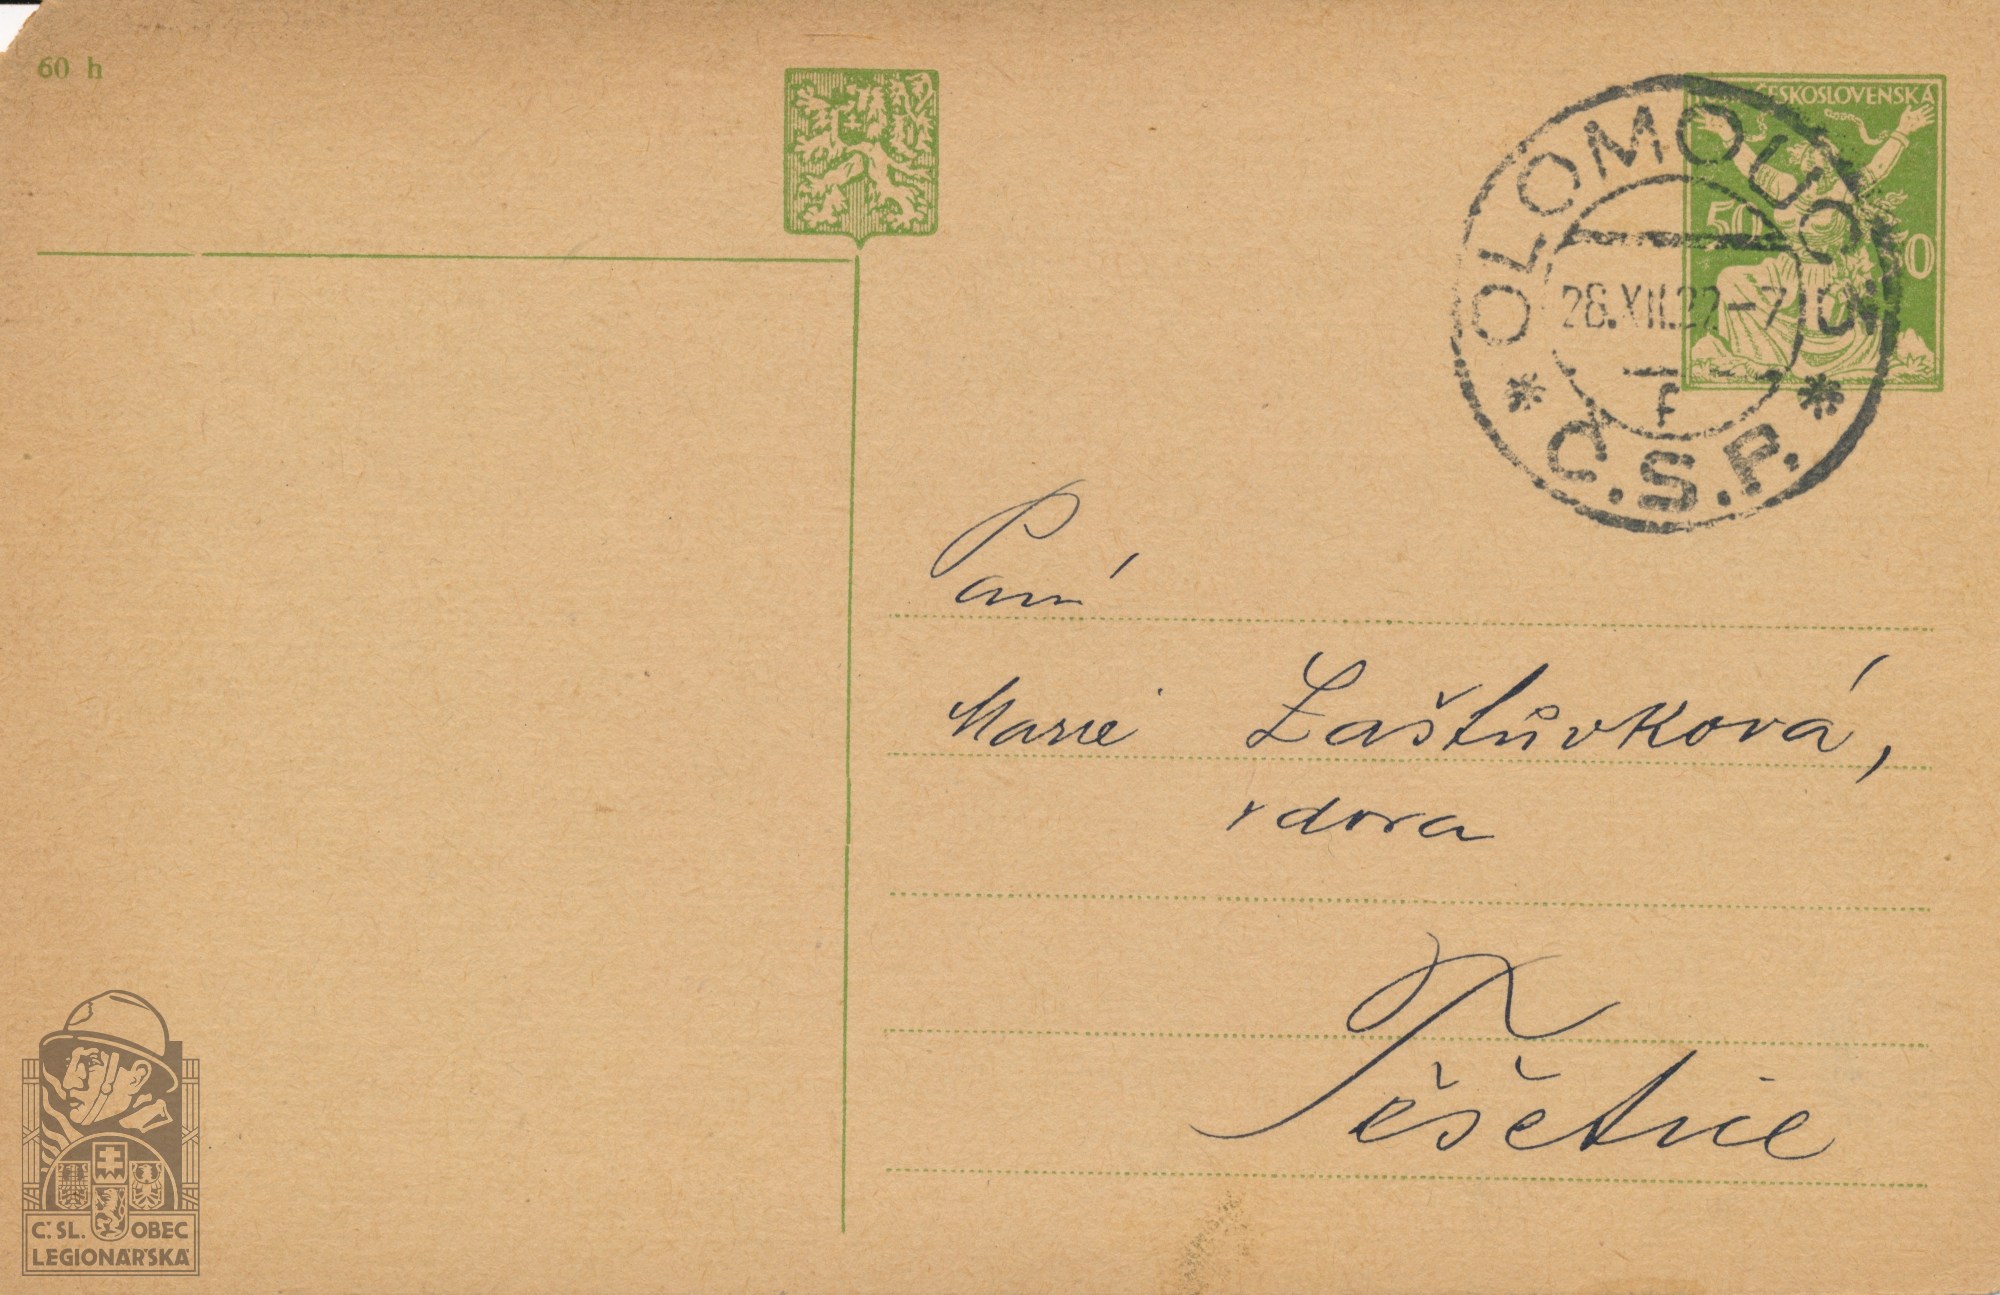 60 h
ČESKOSLOVENSKÁ
50
OLOMOUC 5
28.XII.22-7
F
* Č.S.P. *
Paní
Marie Zaštůvková,
vdova
Těšetice
Č.SL. OBEC
LEGIONÁŘSKÁ